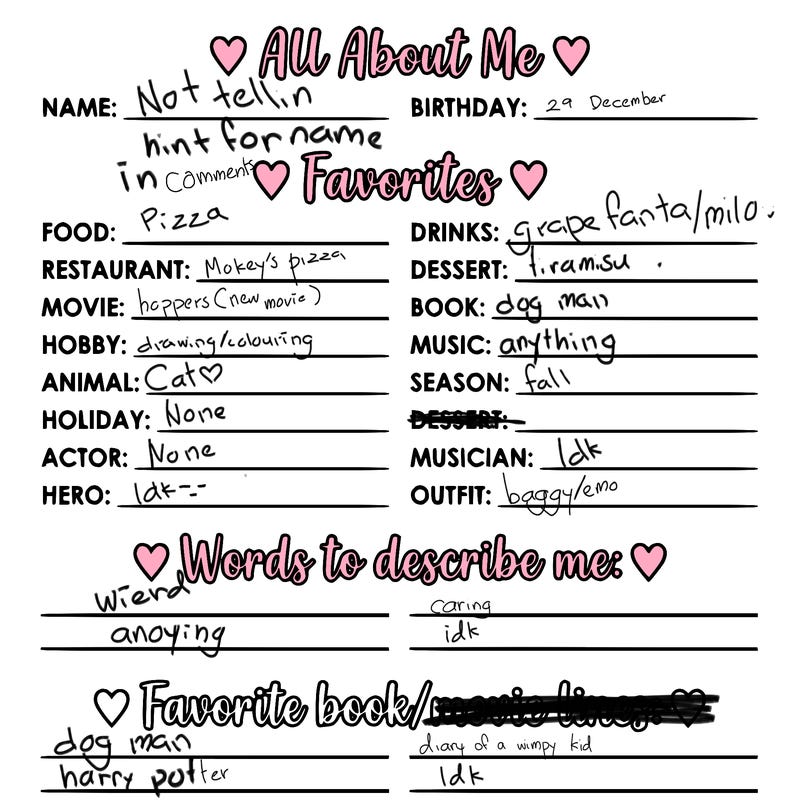 All About Me
NAME: Not tellin BIRTHDAY: 29 December
hint for name
in comments
Favorites
FOOD: Pizza DRINKS: grape fanta/milo.
RESTAURANT: Mokey's pizza DESSERT: tiramisu .
MOVIE: hoppers (new movie) BOOK: dog man
HOBBY: drawing/colouring MUSIC: anything
ANIMAL: Cat♡ SEASON: fall
HOLIDAY: None DESSERT:
ACTOR: None MUSICIAN: Idk
HERO: Idk-.- OUTFIT: baggy/emo
Words to describe me:
wierd caring
anoying idk
Favorite book/movie lines:
dog man diary of a wimpy kid
harry potter Idk